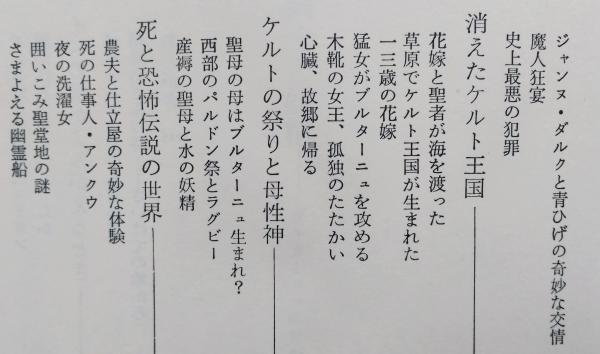 ジャンヌ・ダルクと青ひげの奇妙な交情
魔人狂宴
史上最悪の犯罪
消えたケルト王国
花嫁と聖者が海を渡った
草原でケルト王国が生まれた
一三歳の花嫁
猛女がブルターニュを攻める
木靴の女王、孤独のたたかい
心臓、故郷に帰る
ケルトの祭りと母性神
聖母の母はブルターニュ生まれ？
西部のパルドン祭とラグビー
産褥の聖母と水の妖精
死と恐怖伝説の世界
農夫と仕立屋の奇妙な体験
死の仕事人・アンクウ
夜の洗濯女
囲いこみ聖堂地の謎
さまよえる幽霊船